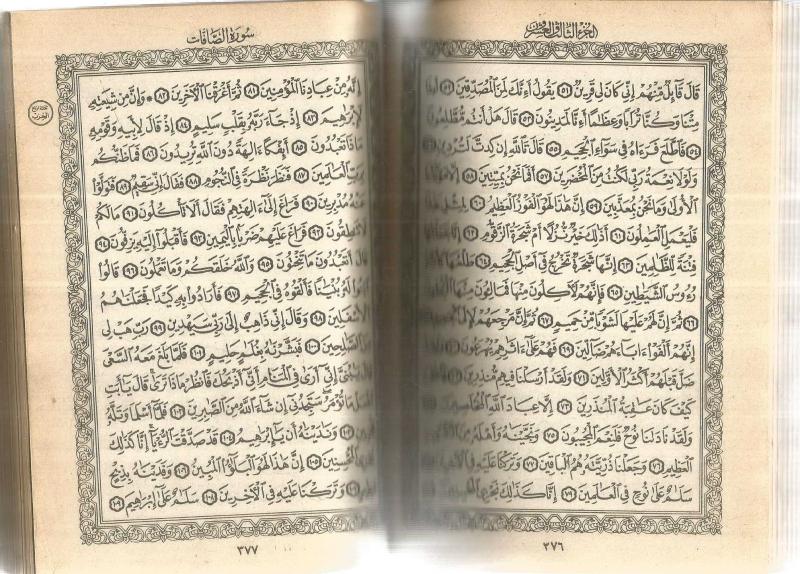 الجزء الثالث والعشرون
قَالَ قَآئِلٌ مِّنْهُمْ إِنِّى كَانَ لِى قَرِينٌ ٥١ يَقُولُ أَءِنَّكَ لَمِنَ ٱلْمُصَدِّقِينَ ٥٢ أَءِذَا
مِتْنَا وَكُنَّا تُرَابًا وَعِظَٰمًا أَءِنَّا لَمَدِينُونَ ٥٣ قَالَ هَلْ أَنتُم مُّطَّلِعُونَ
٥٤ فَٱطَّلَعَ فَرَءَاهُ فِى سَوَآءِ ٱلْجَحِيمِ ٥٥ قَالَ تَٱللَّهِ إِن كِدتَّ لَتُرْدِينِ
وَلَوْلَا نِعْمَةُ رَبِّى لَكُنتُ مِنَ ٱلْمُحْضَرِينَ ٥٧ أَفَمَا نَحْنُ بِمَيِّتِينَ ٥٨ إِلَّا
ٱلْأُولَىٰ وَمَا نَحْنُ بِمُعَذَّبِينَ ٥٩ إِنَّ هَٰذَا لَهُوَ ٱلْفَوْزُ ٱلْعَظِيمُ ٦٠ لِمِثْلِ هَٰذَا
فَلْيَعْمَلِ ٱلْعَٰمِلُونَ ٦١ أَذَٰلِكَ خَيْرٌ نُّزُلًا أَمْ شَجَرَةُ ٱلزَّقُّومِ ٦٢ إِنَّا
فِتْنَةً لِّلظَّٰلِمِينَ ٦٣ إِنَّهَا شَجَرَةٌ تَخْرُجُ فِىٓ أَصْلِ ٱلْجَحِيمِ ٦٤ طَلْعُهَا
رُءُوسُ ٱلشَّيَٰطِينِ ٦٥ فَإِنَّهُمْ لَءَاكِلُونَ مِنْهَا فَمَالِـُٔونَ مِنْهَا
٦٦ ثُمَّ إِنَّ لَهُمْ عَلَيْهَا لَشَوْبًا مِّنْ حَمِيمٍ ٦٧ ثُمَّ إِنَّ مَرْجِعَهُمْ لَإِلَى
إِنَّهُمْ أَلْفَوْا۟ ءَابَآءَهُمْ ضَآلِّينَ ٦٩ فَهُمْ عَلَىٰٓ ءَاثَٰرِهِمْ يُهْرَعُونَ
ضَلَّ قَبْلَهُمْ أَكْثَرُ ٱلْأَوَّلِينَ ٧١ وَلَقَدْ أَرْسَلْنَا فِيهِم مُّنذِرِينَ
كَيْفَ كَانَ عَٰقِبَةُ ٱلْمُنذَرِينَ ٧٣ إِلَّا عِبَادَ ٱللَّهِ ٱلْمُخْلَصِينَ
وَلَقَدْ نَادَىٰنَا نُوحٌ فَلَنِعْمَ ٱلْمُجِيبُونَ ٧٥ وَنَجَّيْنَٰهُ وَأَهْلَهُۥ مِنَ
ٱلْعَظِيمِ ٧٦ وَجَعَلْنَا ذُرِّيَّتَهُۥ هُمُ ٱلْبَاقِينَ ٧٧ وَتَرَكْنَا عَلَيْهِ فِى
سَلَٰمٌ عَلَىٰ نُوحٍ فِى ٱلْعَٰلَمِينَ ٧٩ إِنَّا كَذَٰلِكَ نَجْزِى
٣٧٦
سورة الصافات
إِنَّهُۥ مِنْ عِبَادِنَا ٱلْمُؤْمِنِينَ ٨١ ثُمَّ أَغْرَقْنَا ٱلْءَاخَرِينَ ٨٢ ۞ وَإِنَّ مِن شِيعَتِهِۦ
لَإِبْرَٰهِيمَ ٨٣ إِذْ جَآءَ رَبَّهُۥ بِقَلْبٍ سَلِيمٍ ٨٤ إِذْ قَالَ لِأَبِيهِ وَقَوْمِهِۦ
مَاذَا تَعْبُدُونَ ٨٥ أَئِفْكًا ءَالِهَةً دُونَ ٱللَّهِ تُرِيدُونَ ٨٦ فَمَا ظَنُّكُم
بِرَبِّ ٱلْعَٰلَمِينَ ٨٧ فَنَظَرَ نَظْرَةً فِى ٱلنُّجُومِ ٨٨ فَقَالَ إِنِّى سَقِيمٌ ٨٩ فَتَوَلَّوْا۟
عَنْهُ مُدْبِرِينَ ٩٠ فَرَاغَ إِلَىٰٓ ءَالِهَتِهِمْ فَقَالَ أَلَا تَأْكُلُونَ ٩١ مَا لَكُمْ
لَا تَنطِقُونَ ٩٢ فَرَاغَ عَلَيْهِمْ ضَرْبًۢا بِٱلْيَمِينِ ٩٣ فَأَقْبَلُوٓا۟ إِلَيْهِ يَزِفُّونَ ٩٤
قَالَ أَتَعْبُدُونَ مَا تَنْحِتُونَ ٩٥ وَٱللَّهُ خَلَقَكُمْ وَمَا تَعْمَلُونَ ٩٦ قَالُوا۟
ٱبْنُوا۟ لَهُۥ بُنْيَٰنًا فَأَلْقُوهُ فِى ٱلْجَحِيمِ ٩٧ فَأَرَادُوا۟ بِهِۦ كَيْدًا فَجَعَلْنَٰهُمُ
ٱلْأَسْفَلِينَ ٩٨ وَقَالَ إِنِّى ذَاهِبٌ إِلَىٰ رَبِّى سَيَهْدِينِ ٩٩ رَبِّ هَبْ لِى
مِنَ ٱلصَّٰلِحِينَ ١٠٠ فَبَشَّرْنَٰهُ بِغُلَٰمٍ حَلِيمٍ ١٠١ فَلَمَّا بَلَغَ مَعَهُ ٱلسَّعْىَ
قَالَ يَٰبُنَىَّ إِنِّىٓ أَرَىٰ فِى ٱلْمَنَامِ أَنِّىٓ أَذْبَحُكَ فَٱنظُرْ مَاذَا تَرَىٰ قَالَ يَٰٓأَبَتِ
ٱفْعَلْ مَا تُؤْمَرُ سَتَجِدُنِىٓ إِن شَآءَ ٱللَّهُ مِنَ ٱلصَّٰبِرِينَ ١٠٢ فَلَمَّآ أَسْلَمَا وَتَلَّهُۥ
وَنَٰدَيْنَٰهُ أَن يَٰٓإِبْرَٰهِيمُ ١٠٤ قَدْ صَدَّقْتَ ٱلرُّءْيَآ إِنَّا كَذَٰلِكَ
ٱلْمُحْسِنِينَ ١٠٥ إِنَّ هَٰذَا لَهُوَ ٱلْبَلَٰٓؤُا۟ ٱلْمُبِينُ ١٠٦ وَفَدَيْنَٰهُ بِذِبْحٍ
وَتَرَكْنَا عَلَيْهِ فِى ٱلْءَاخِرِينَ ١٠٨ سَلَٰمٌ عَلَىٰٓ إِبْرَٰهِيمَ ١٠٩
٣٧٧